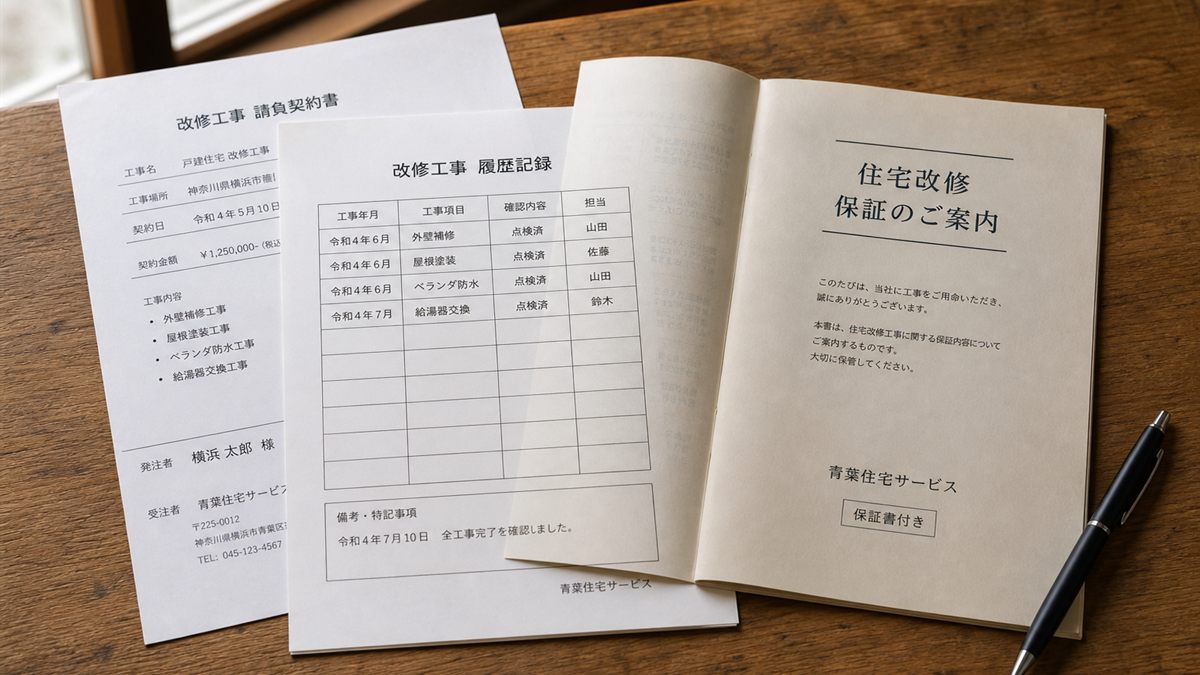 改修工事 請負契約書
工事名 戸建住宅 改修工事
工事場所 神奈川県横浜市
契約日 令和4年5月10日
契約金額 ¥1,250,000-(税込
工事内容
• 外壁補修工事
• 屋根塗装工事
• ベランダ防水工事
• 給湯器交換工事
発注者 横浜 太郎 様
受注者 青葉住宅サービス
〒225-0012
神奈川県横浜市青葉区
TEL: 045-123-4567
改修工事 履歴記録
工事年月 工事項目 確認内容 担当
令和4年6月 外壁補修 点検済 山田
令和4年6月 屋根塗装 点検済 佐藤
令和4年6月 ベランダ防水 点検済 山田
令和4年7月 給湯器交換 点検済 鈴木
備考・特記事項
令和4年7月10日 全工事完了を確認しました。
青葉住宅サービス
住宅改修
保証のご案内
このたびは、当社に工事をご用命いただき、
誠にありがとうございます。
本書は、住宅改修工事に関する保証内容について
ご案内するものです。
大切に保管してください。
青葉住宅サービス
保証書付き